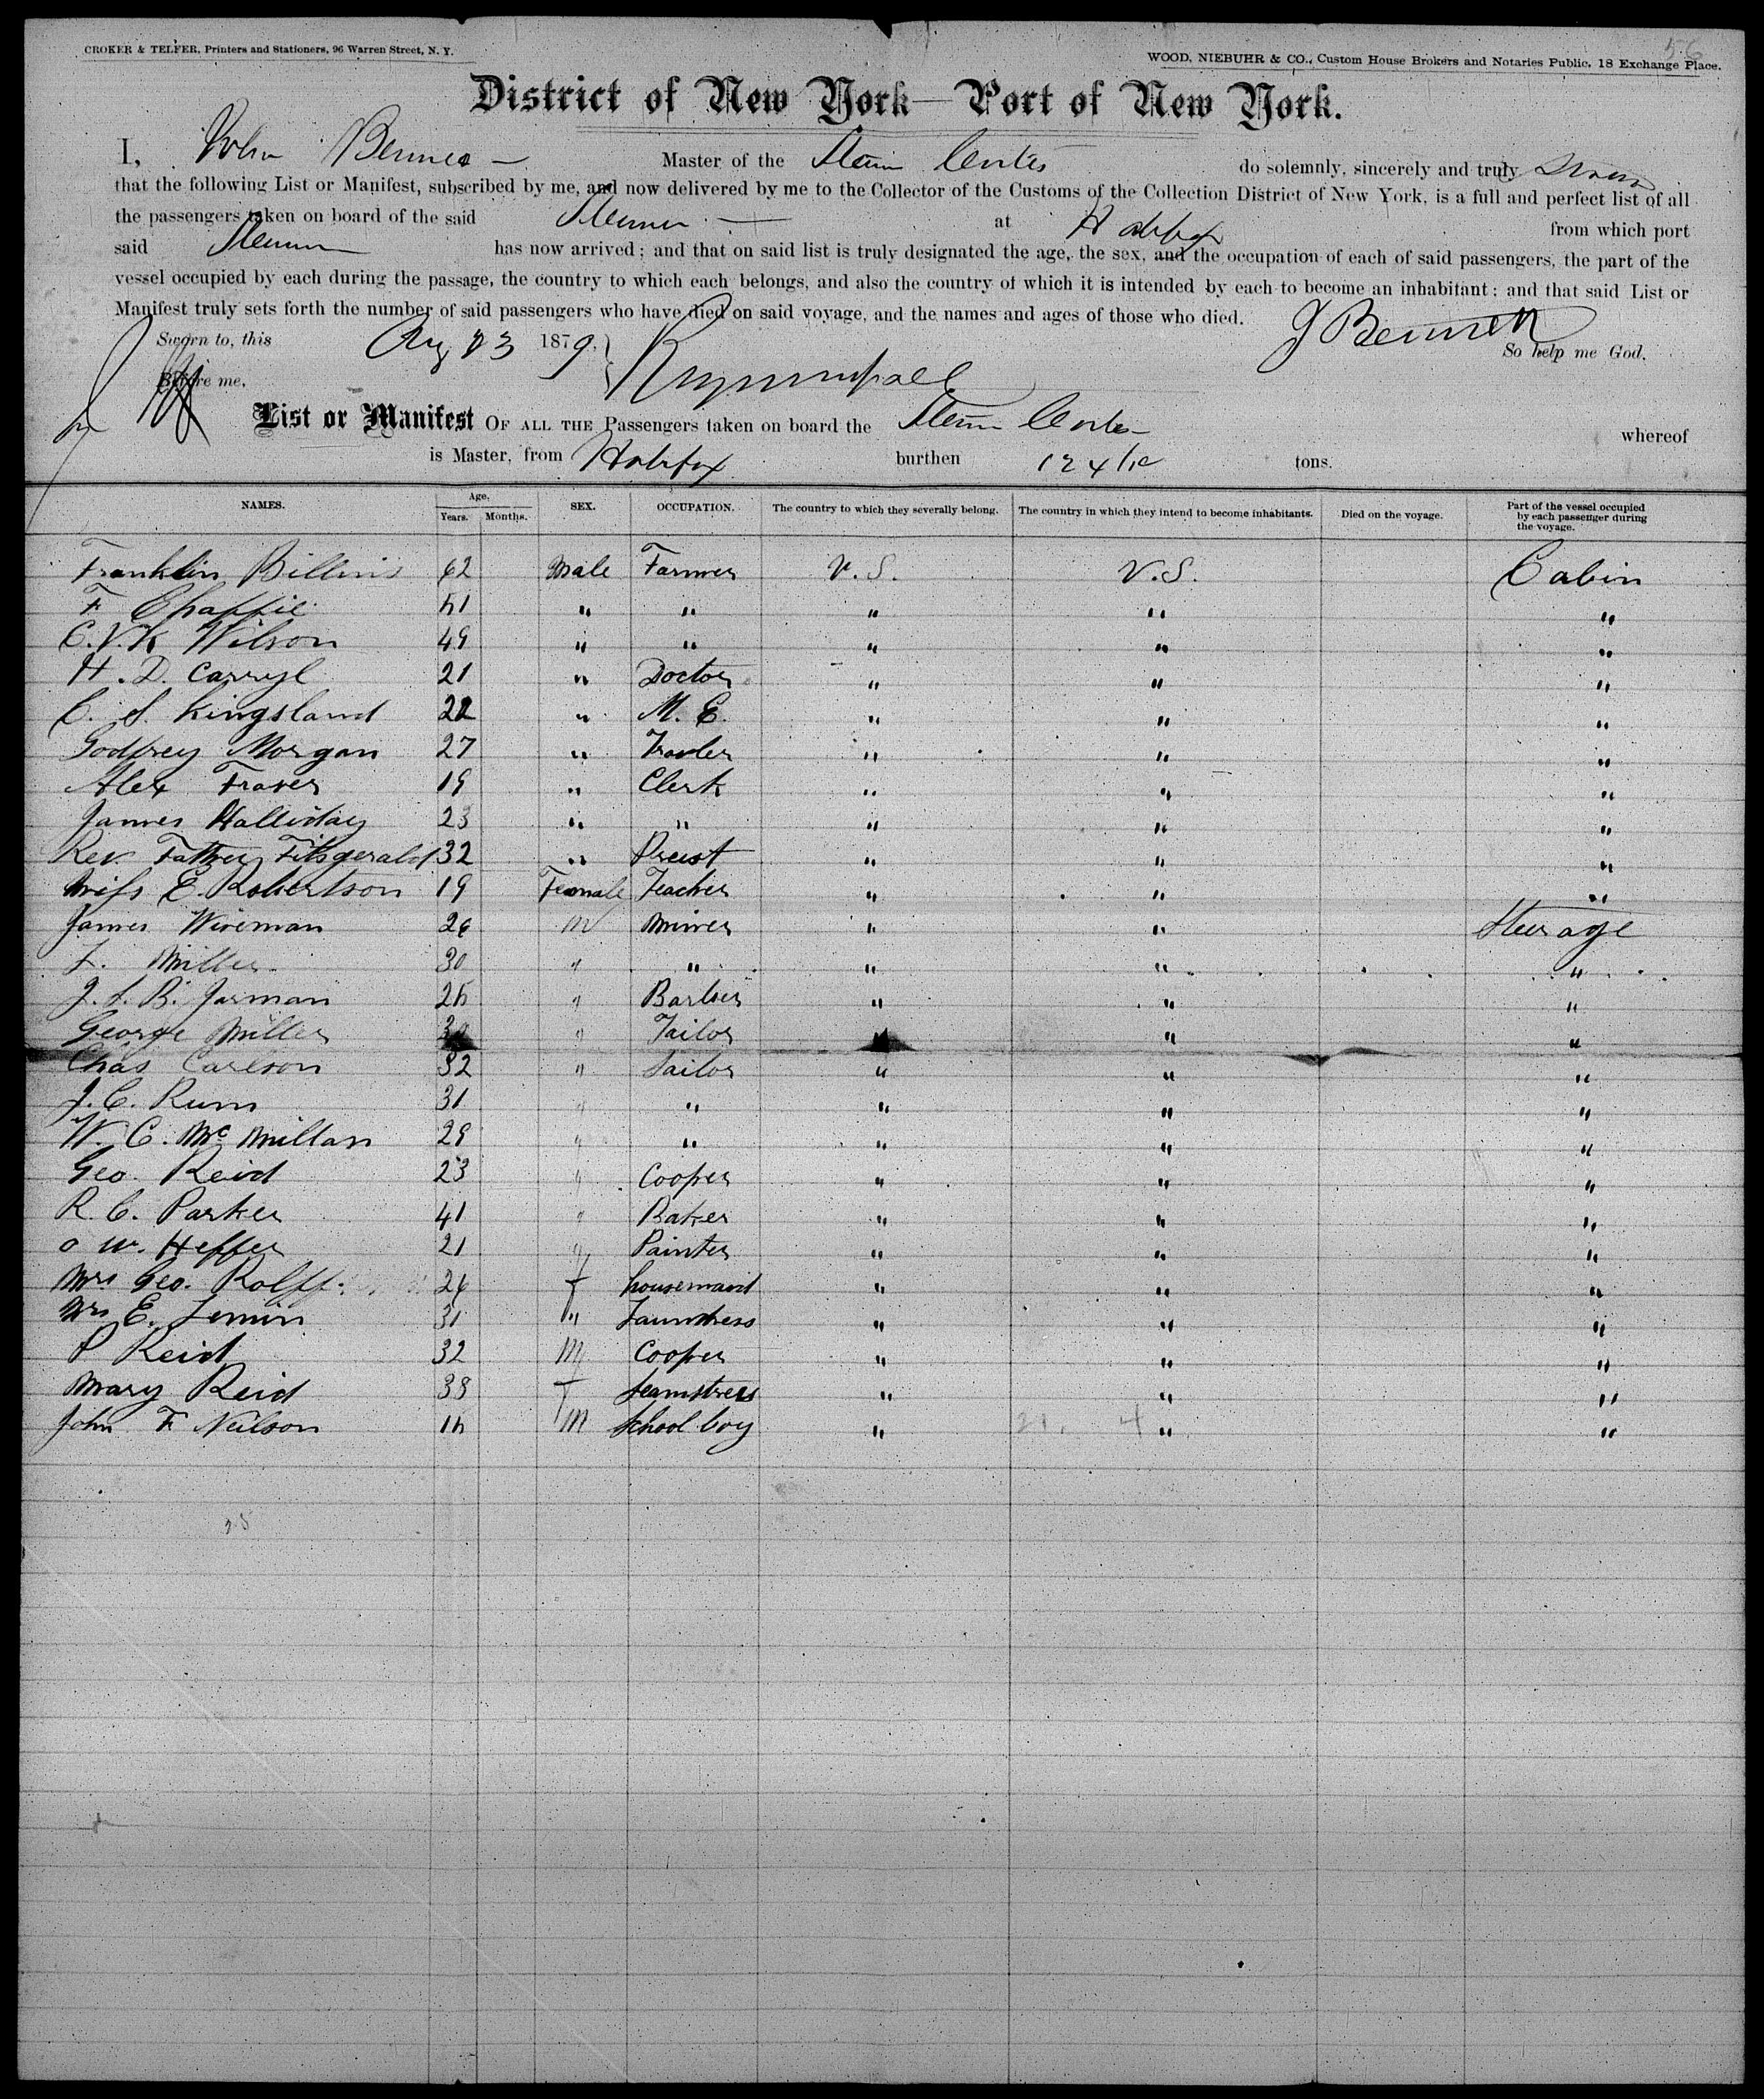 56
CROKER & TELFER, Printers and Stationers, 96 Warren Street, N. Y. WOOD, NIEBUHR & CO., Custom House Brokers and Notaries Public, 18 Exchange Place.
District of New York—Port of New York.
I, John Bennett Master of the Steam Cortes do solemnly, sincerely and truly swear
that the following List or Manifest, subscribed by me, and now delivered by me to the Collector of the Customs of the Collection District of New York, is a full and perfect list of all
the passengers taken on board of the said Steamer at Halifax from which port
said Steamer has now arrived; and that on said list is truly designated the age, the sex, and the occupation of each of said passengers, the part of the
vessel occupied by each during the passage, the country to which each belongs, and also the country of which it is intended by each to become an inhabitant; and that said List or
Manifest truly sets forth the number of said passengers who have died on said voyage, and the names and ages of those who died. J Bennett
Sworn to, this Aug 23 1879. So help me God.
Before me,
List or Manifest OF ALL THE Passengers taken on board the Steam Cortes whereof
is Master, from Halifax burthen tons.
NAMES. Age. Years. Months. SEX. OCCUPATION. The country to which they severally belong. The country in which they intend to become inhabitants. Died on the voyage. Part of the vessel occupied by each passenger during the voyage.
Franklin Billins 62 Male Farmer U.S. U.S. Cabin
F Chaffie 51 " " " " "
C.V.K Wilson 49 " " " " "
H. D. Carryl 21 " Doctor " " "
C. S. Kingsland 22 " M. E. " " "
Godfrey Morgan 27 " " " "
Alex Fraser 19 " Clerk " " "
James Halliday 23 " " " " "
Rev. Father Fitsgerald 32 " Preist " " "
Miss E. Robertson 19 Female Teacher " " "
James Wireman 26 M Miner " " Steerage
L. Miller 30 " " " " "
J. S. B. Jarman 25 " Barber " " "
George Miller 30 " Tailor " " "
Chas Carlson 32 " Sailor " " "
J. C. Rum 31 " " " " "
W. C. McMillan 29 " " " " "
Geo. Reid 23 " Cooper " " "
R. C. Parker 41 " Baker " " "
O W. Heffer 21 " Painter " " "
Mrs Geo. Rolff 26 F housemaid " " "
Mrs E. Lemin 31 " Laundress " " "
P Reid 32 M Cooper " " "
Mary Reid 38 F Seamstress " " "
John F Neilson 15 M School boy " 21. 4 " "
25